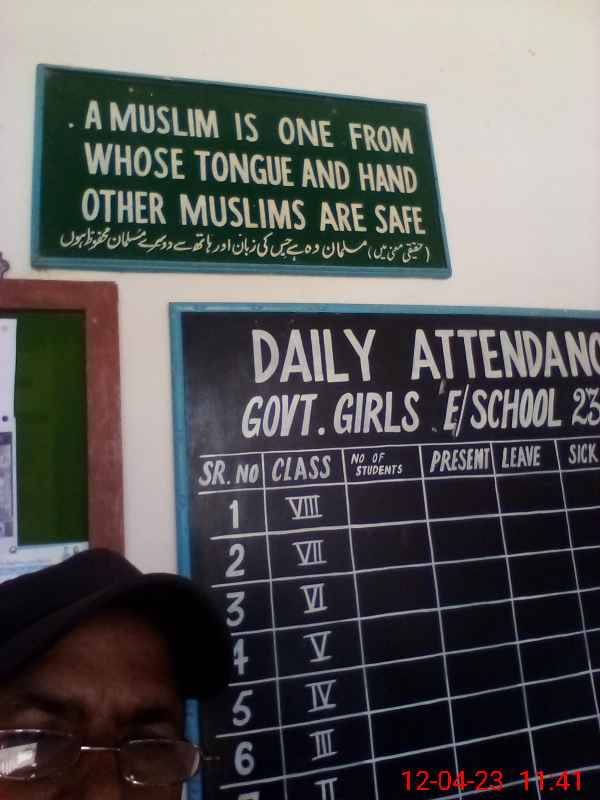 . A MUSLIM IS ONE FROM
WHOSE TONGUE AND HAND
OTHER MUSLIMS ARE SAFE
(حقیقی معنی میں) مسلمان وہ ہے جس کی زبان اور ہاتھ سے دوسرے مسلمان محفوظ ہوں
DAILY ATTENDANC
GOVT. GIRLS E/SCHOOL 23
SR. NO CLASS NO OF STUDENTS PRESENT LEAVE SICK
1 VIII
2 VII
3 VI
4 V
5 IV
6 III
7 II
12-04-23 11.41